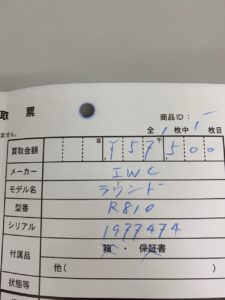 取 票
商品ID：
全 1 枚中 1 枚目
ません。
買取金額 百 ¥57 千 500
メーカー IWC
モデル名 ラウンド
型番 R810
シリアル 1977474
付属品 箱・保証書
他(
状態等